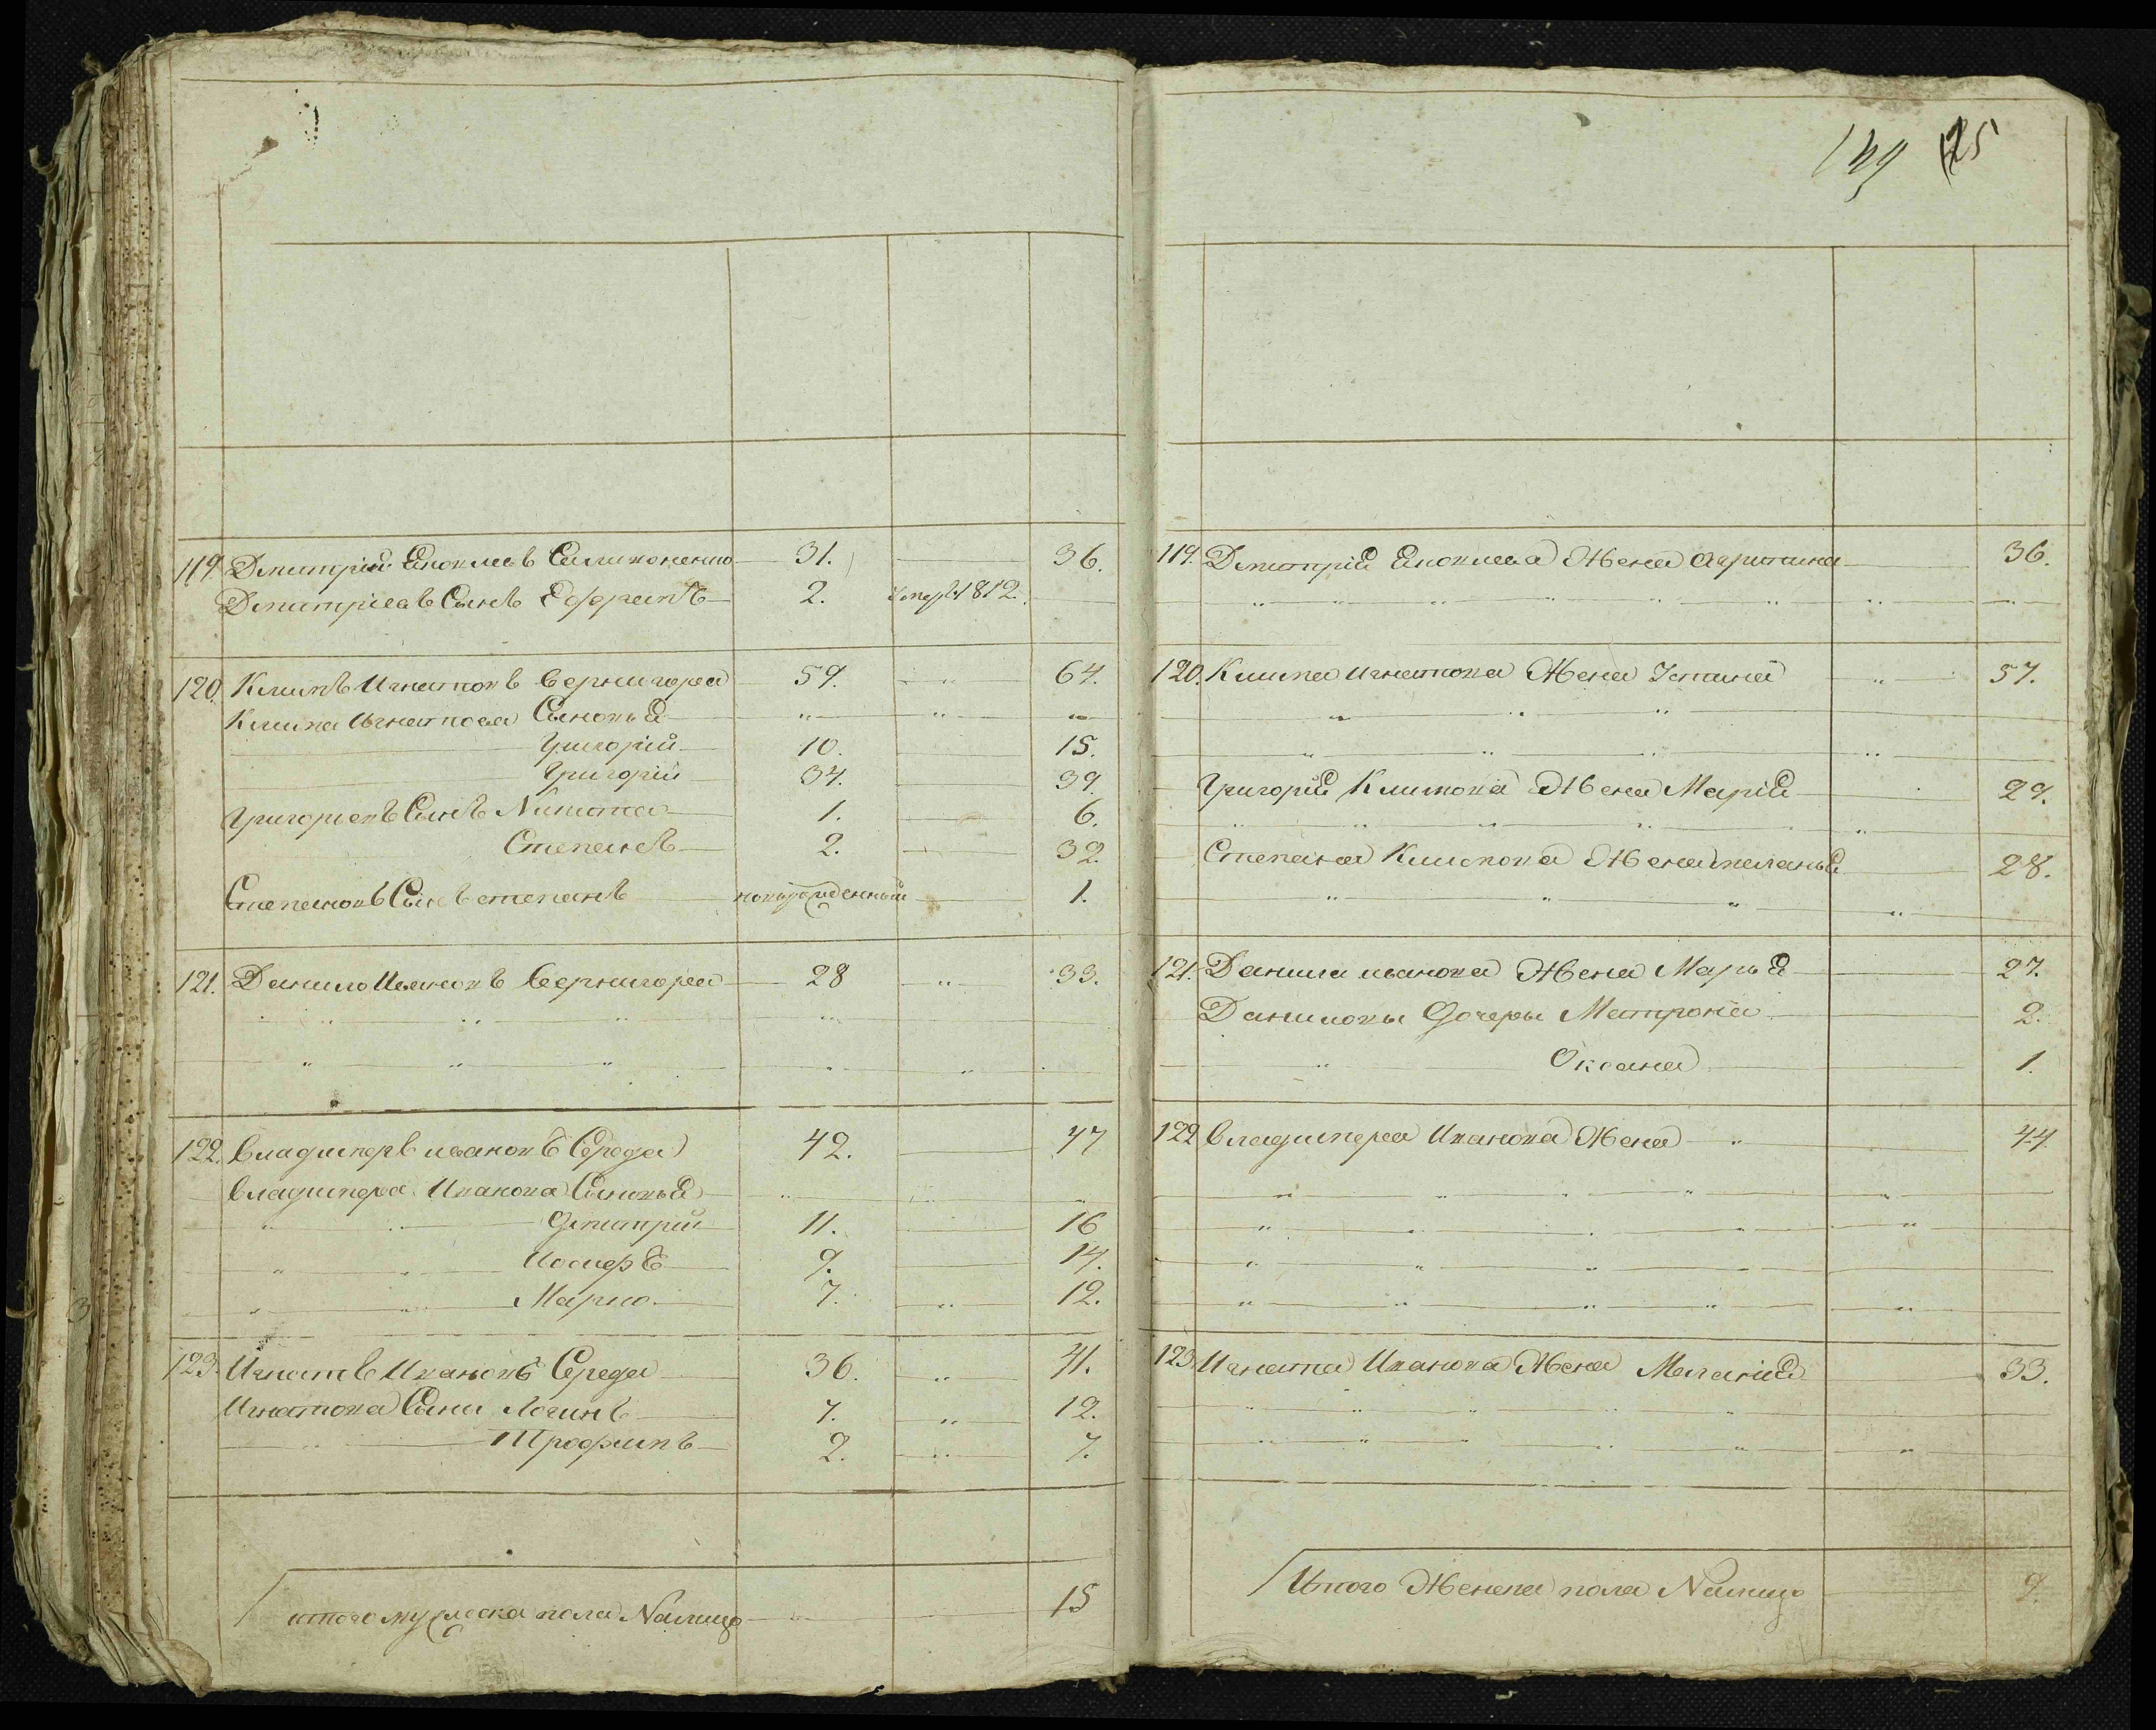 149 125
119. Дмитрій Яковлевъ Симоненко 31. 36.
Дмитріевъ Сынъ Ефремъ 2. Умер 1812.
120. Климъ Игнатовъ Вернигора 59. 64.
Клима Игнатова Сыновья
Григорій 10. 15.
Григорій 34. 39.
Григорьевъ Сынъ Никита 1. 6.
Степанъ 2. 32.
Степановъ Сынъ степанъ новорожденный 1.
121. Данило Ивановъ Вернигора 28 33.
122. Владимеръ ивановъ Середа 42. 47
Владимера Иванова Сыновья
Дмитрій 11. 16
Иосифъ 9. 14.
Марко 7. 12.
123. Игнатъ Ивановъ Середа 36. 41.
Игнатова Сыны Логинъ 7. 12.
Трофимъ 2. 7.
итого мужеска пола Налицо 15
119. Дмитрія Яковлева Жена 36.
120. Клима игнатова Жена Устинія 57.
Григорія Климова Жена Марія 29.
Степана Климова Жена меланья 28.
121. Данила иванова Жена Марья 27.
Даниловы дочеры Матрона 2.
Оксана 1.
122 Владимера Иванова Жена 44
123. Игната Иванова Жена Меланія 33.
Итого Женска пола Налицо 9.